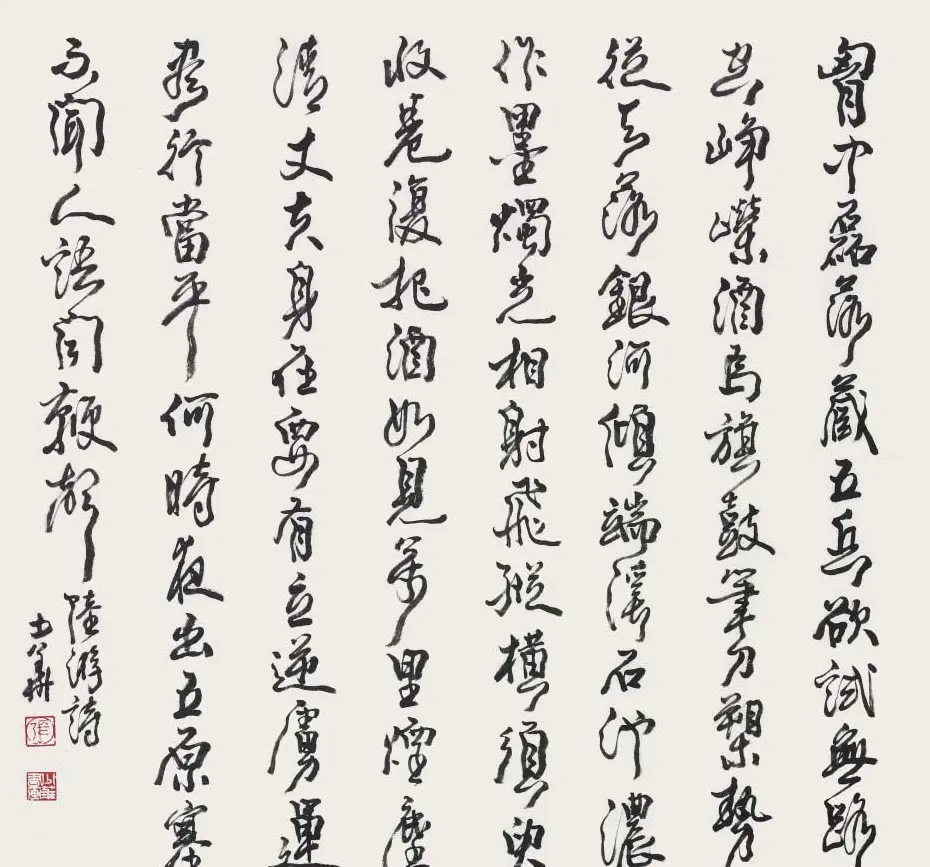 胷中磊落藏五兵欲試無路
空崢嶸酒為旗鼓筆刀槊勢
從天落銀河傾端溪石池濃
作墨燭光相射飛縱橫須臾
收卷復把酒如見萬里煙塵
清丈夫身在要有立逆虜運
盡行當平何時夜出五原塞
不聞人語聞鞭聲
陸游詩